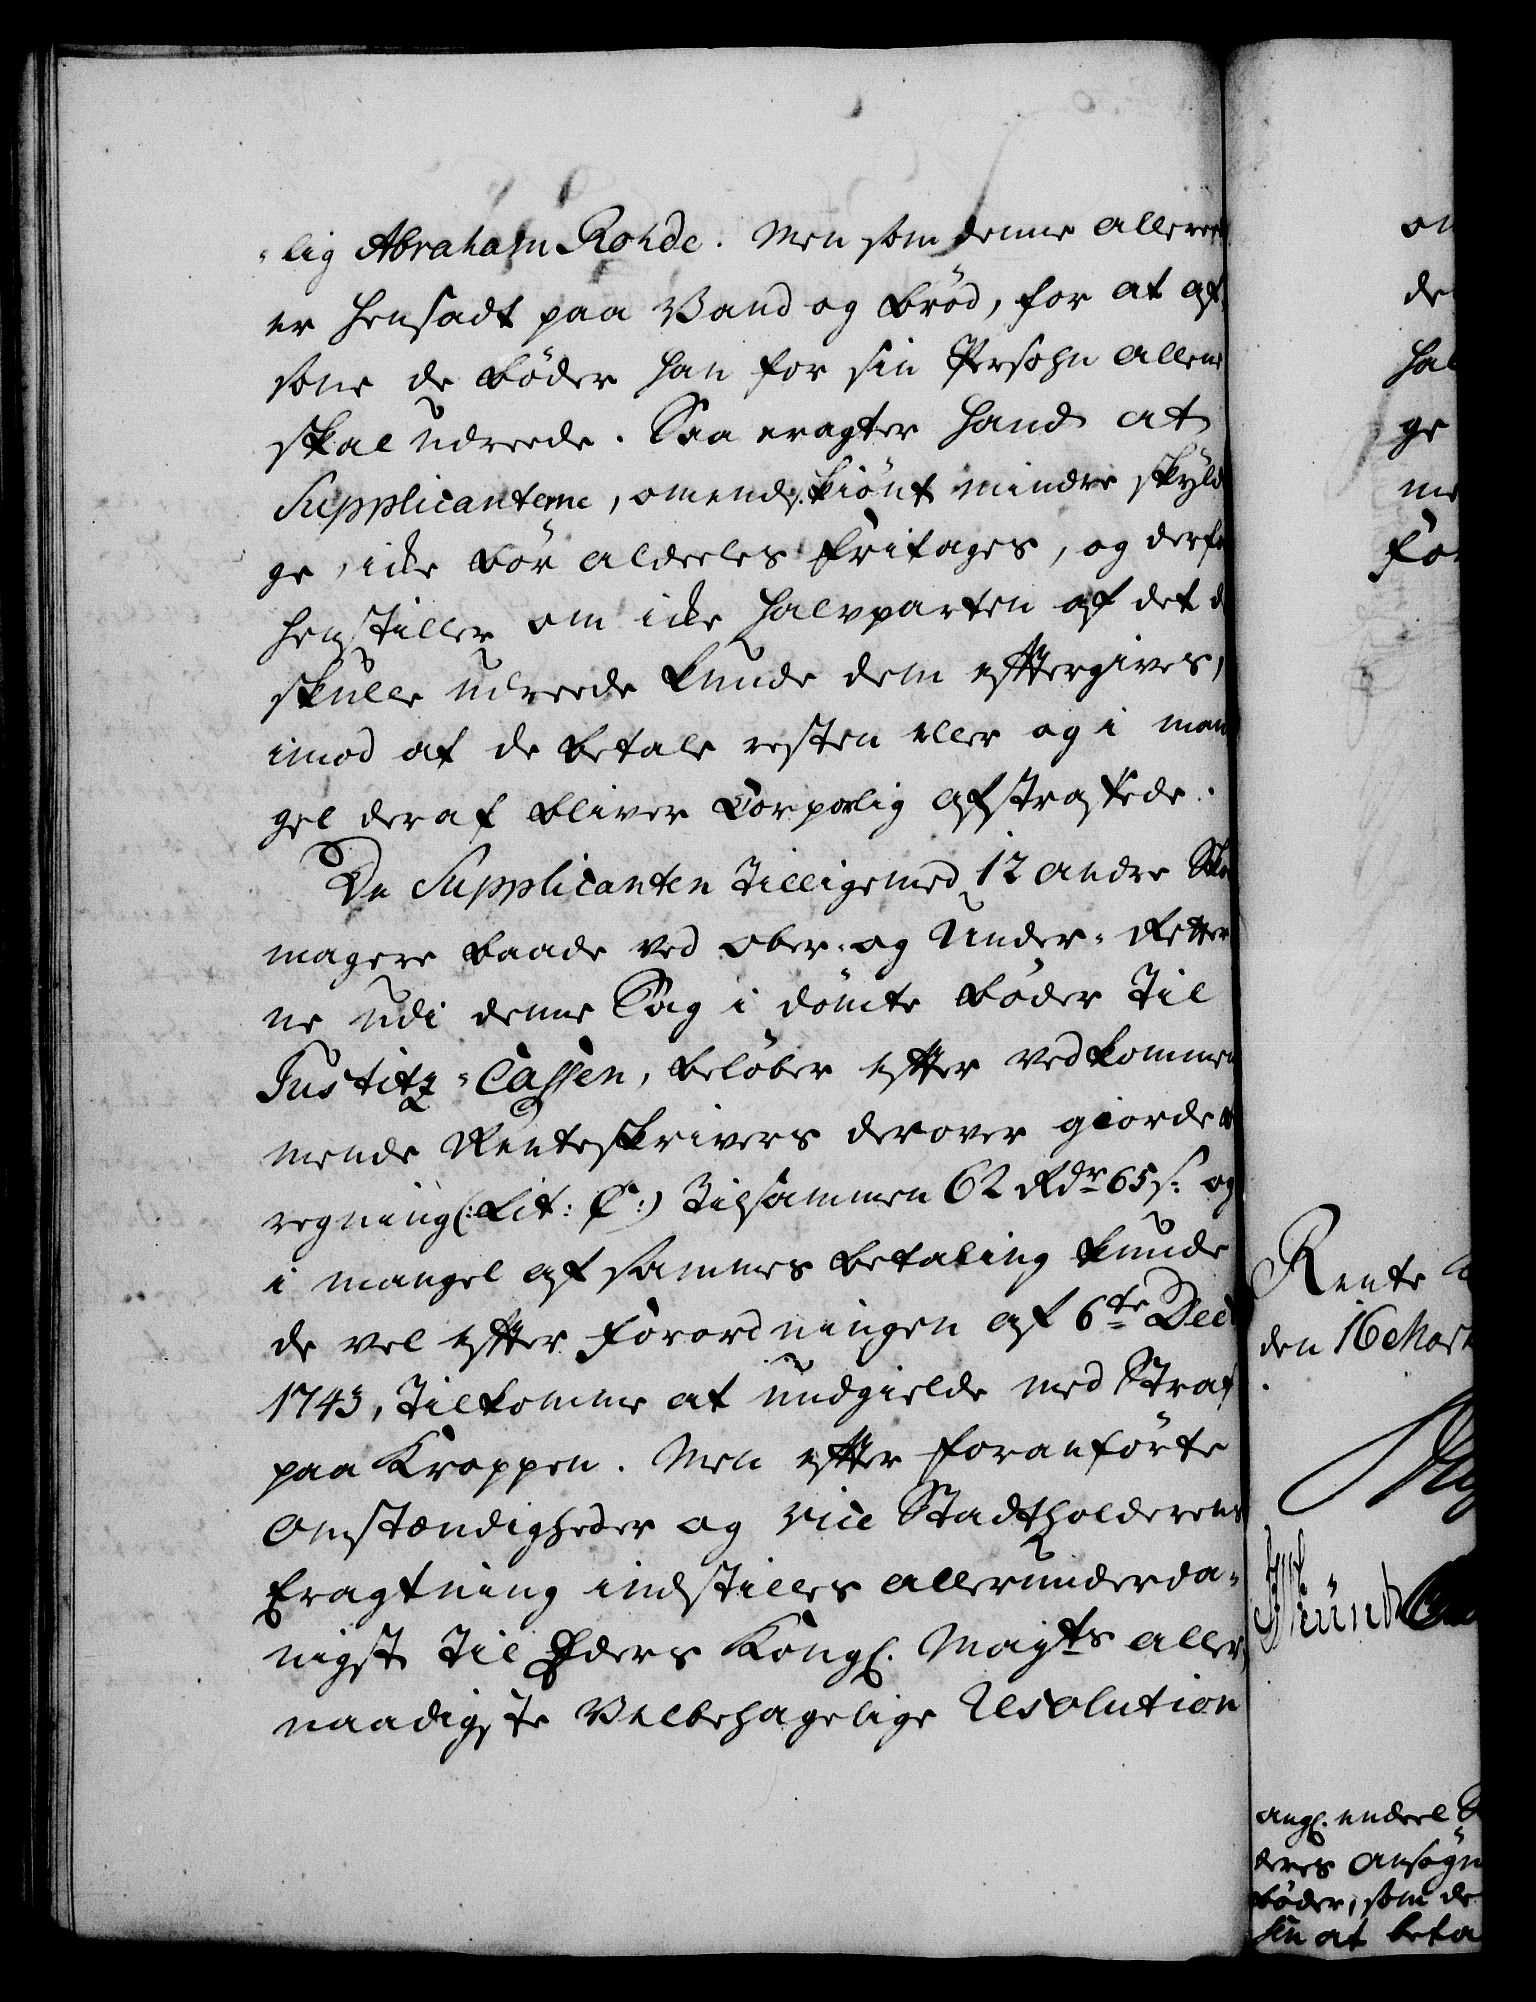 lig Abraham Rohde. Men som denne allere
er hensadt paa Vand og Brød, for at af-
sone de Bøder han for sin Persohn allene
skal udreede. Saa eragter Hand at
Supplicanterne, omendskiønt mindre skyld
ge, icke bør aldeeles fritages, og derfo
henstiller om icke halvparten af det d
skulle udreede kunde dem efftergives,
imod at de betale resten eller og i man
gel deraf bliver Corporlig afstraffede.
De Supplicanten tilligemed 12 andre Sko
magere baade ved Ober- og Under-Retter
ne udi denne Sag idømte Bøder til
Justitz-Cassen, beløber effter vedkommen
mende Renteskrivers derover giorde
regning (: Lit: C :) tilsammen 62 Rdr 65 s: og
i mangel af sammes betaling kunde
de vel effter Forordningen af 6te Dec
1743, tilkomme at undgielde med Straf
paa Kroppen. Men effter foranførte
Omstændigheder og Vice Stadtholderens
Eragtning indstilles allerunderda-
nigst til Eders Kongl. Maytts aller
naadigste Velbehagelige Resolution
on
de
hal
ge
me
For
Rente
den 16 Mart
angl. endeel
deres Ansøgn
Bøder, som de
sen at beta